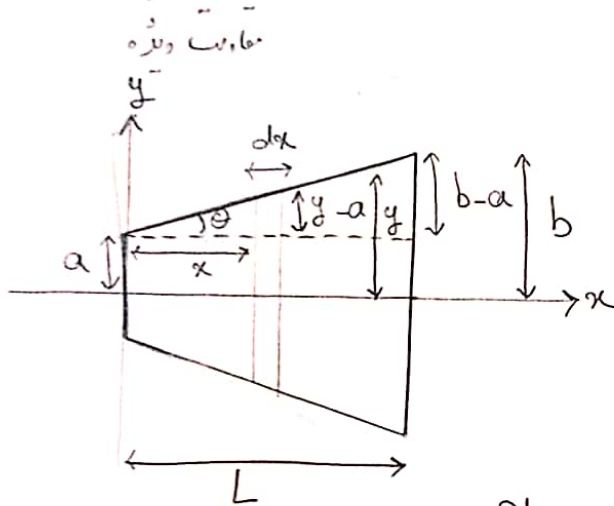 مقاومت ویژه
y
dx
θ
y-a
y
b-a
b
a
x
x
L